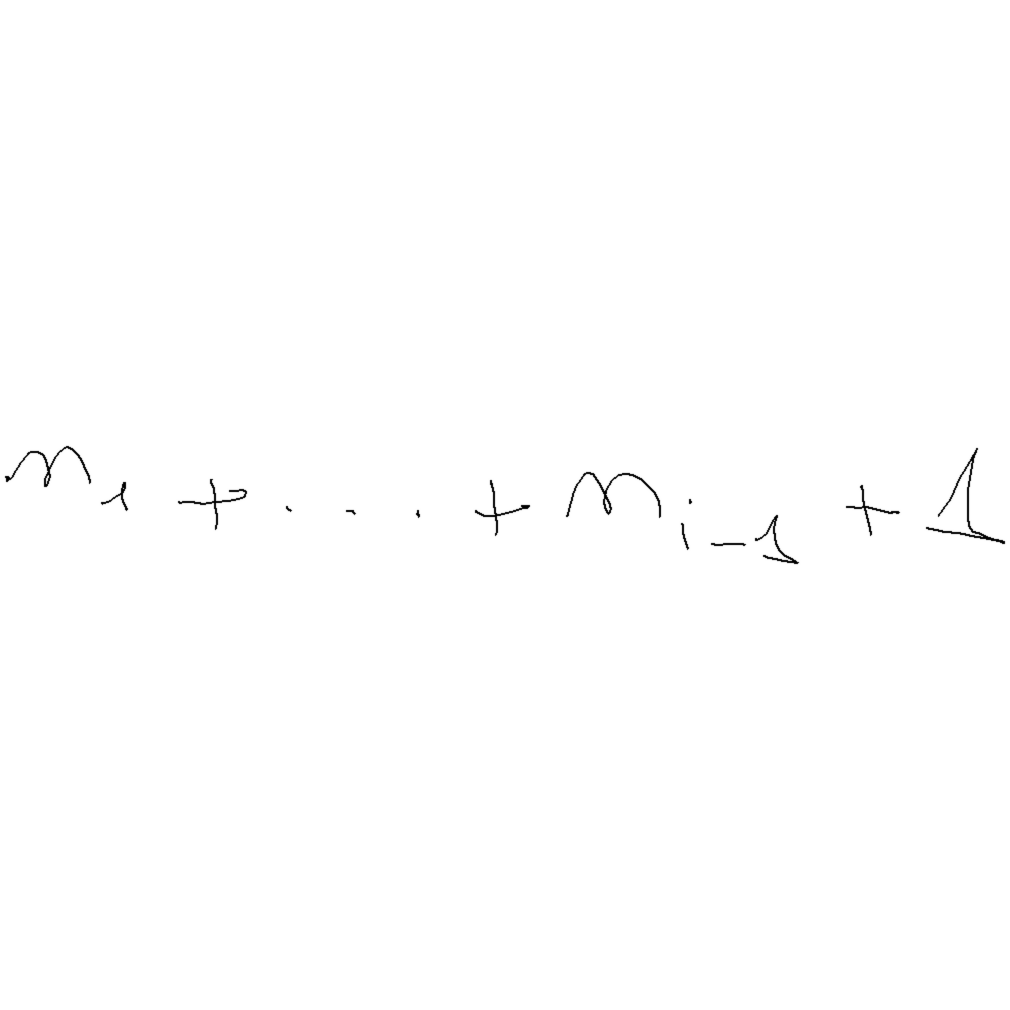 m₁ + ... + m_{i-1} + 1